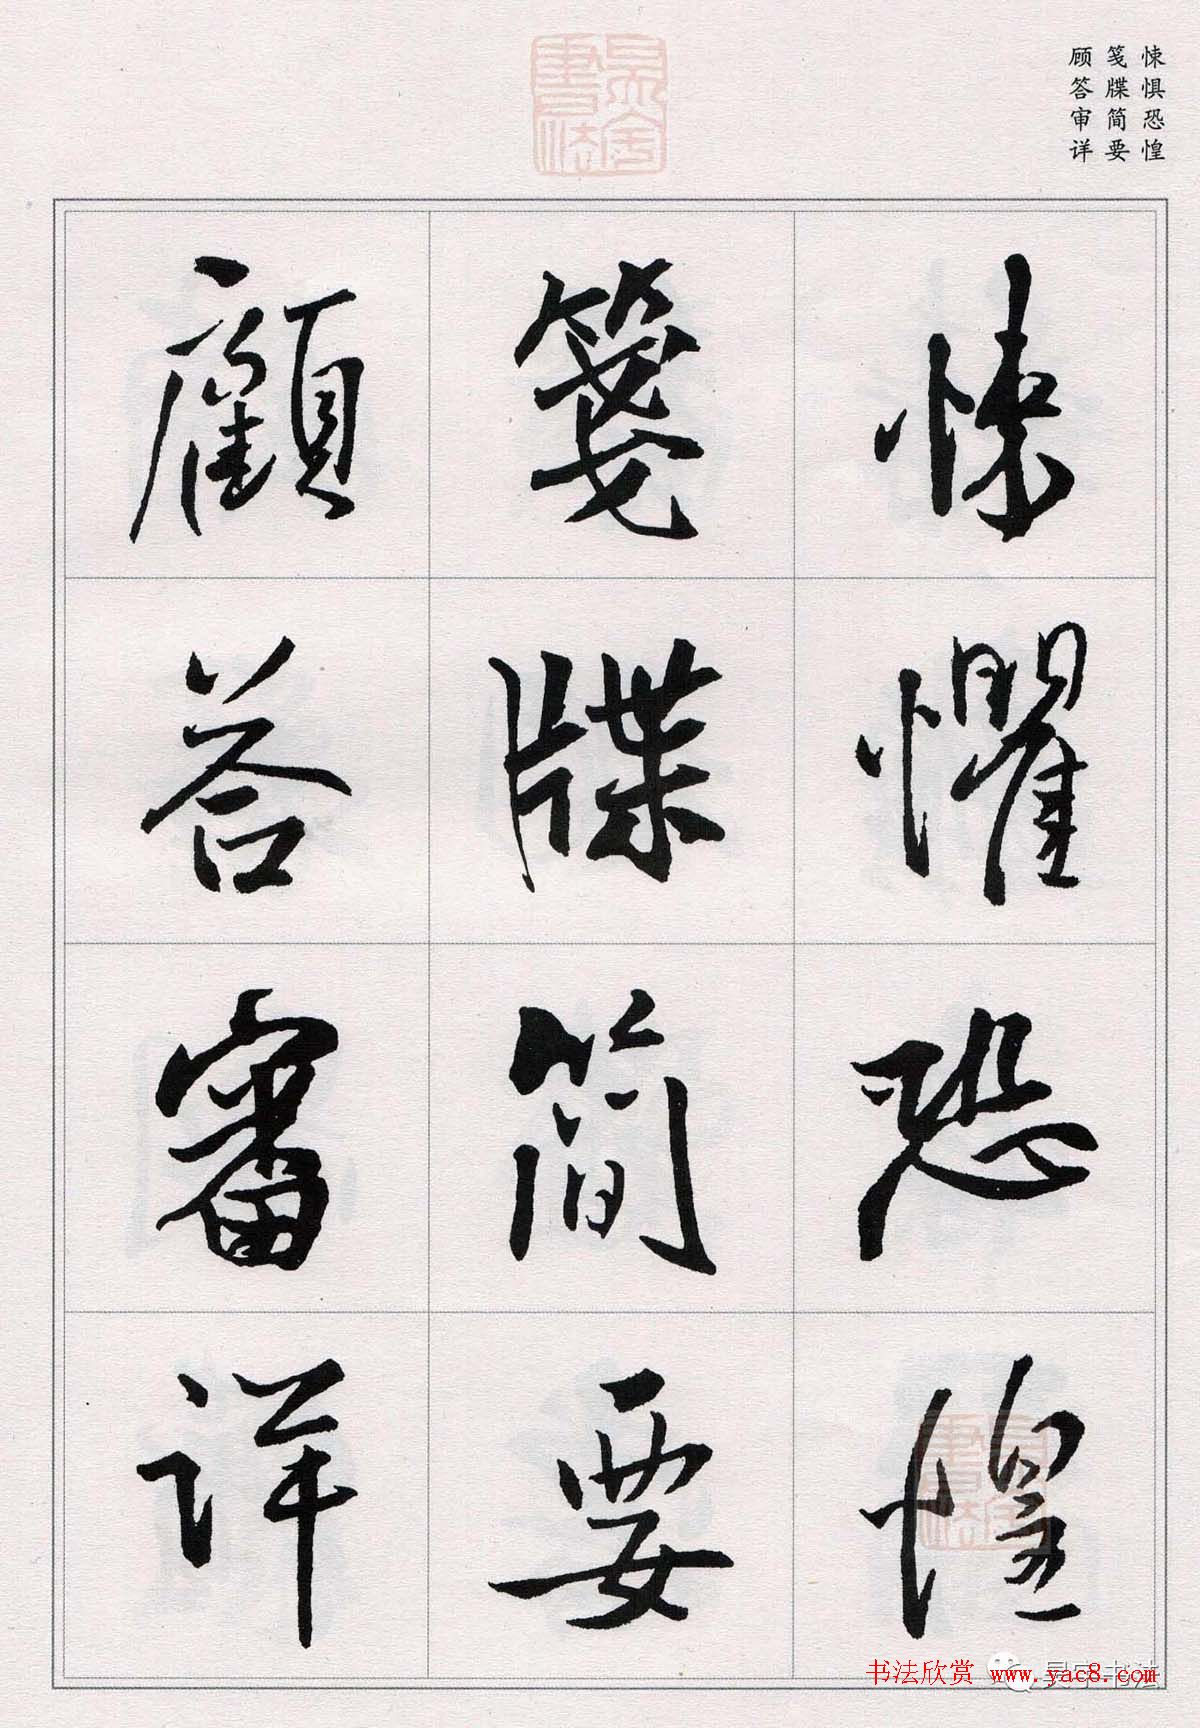 悚惧恐惶
笺牒简要
顾答审详
悚懼恐惶
箋牒簡要
顧答審詳
書法
書法
书法欣赏 www.yac8.com
昊宇书法